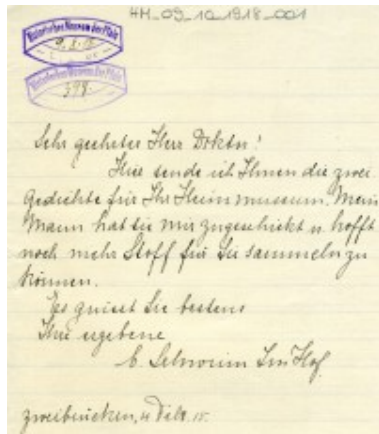 HM_09_10_1918_001
Historisches Museum der Pfalz
Historisches Museum der Pfalz
398.
Sehr geehrter Herr Doktor!
Hier sende ich Ihnen die zwei
Gedichte für Ihr Heim museum. Mein
Mann hat sie mir zugeschickt u. hofft
noch mehr Stoff für Sie sammeln zu
können.
Es grüsst Sie bestens
Ihre ergebene
Im Hof
Zweibrücken, 4